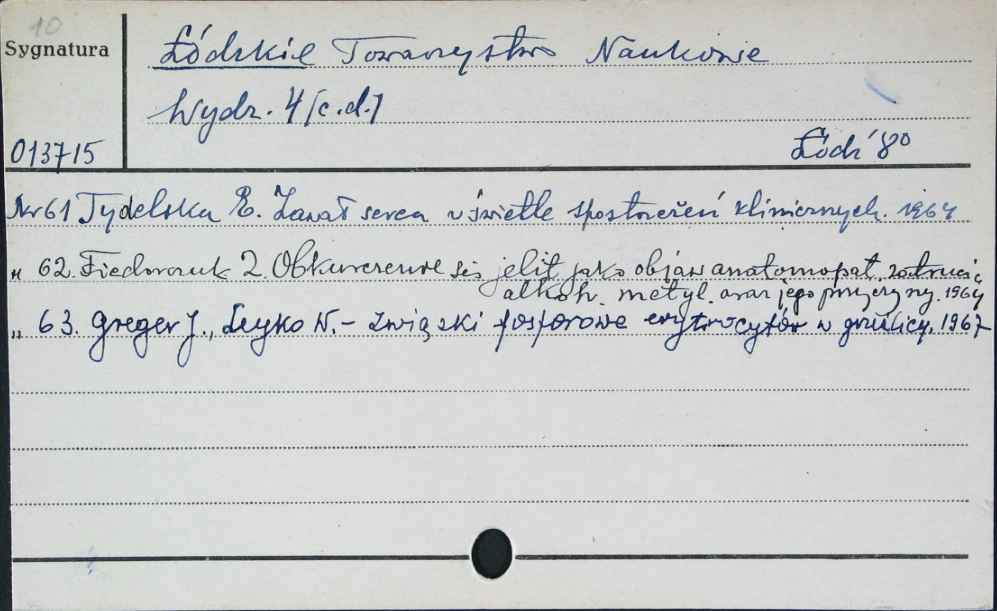 10
Sygnatura
Łódzkie Towarzystwo Naukowe
Wydz. 4 [c.d.]
013715
Łódź 8°
Nr 61 Tydelska E. Zawał serca w świetle spostrzeżeń klinicznych. 1964
" 62. Fiedorczuk Z. Obkurczenie się jelit jako objaw anatomopat. zatrucia
alkoh. metyl. oraz jego przyczyny. 1964
" 63. Greger J., Leyko W. - Związki fosforowe erytrocytów w gruźlicy. 1967